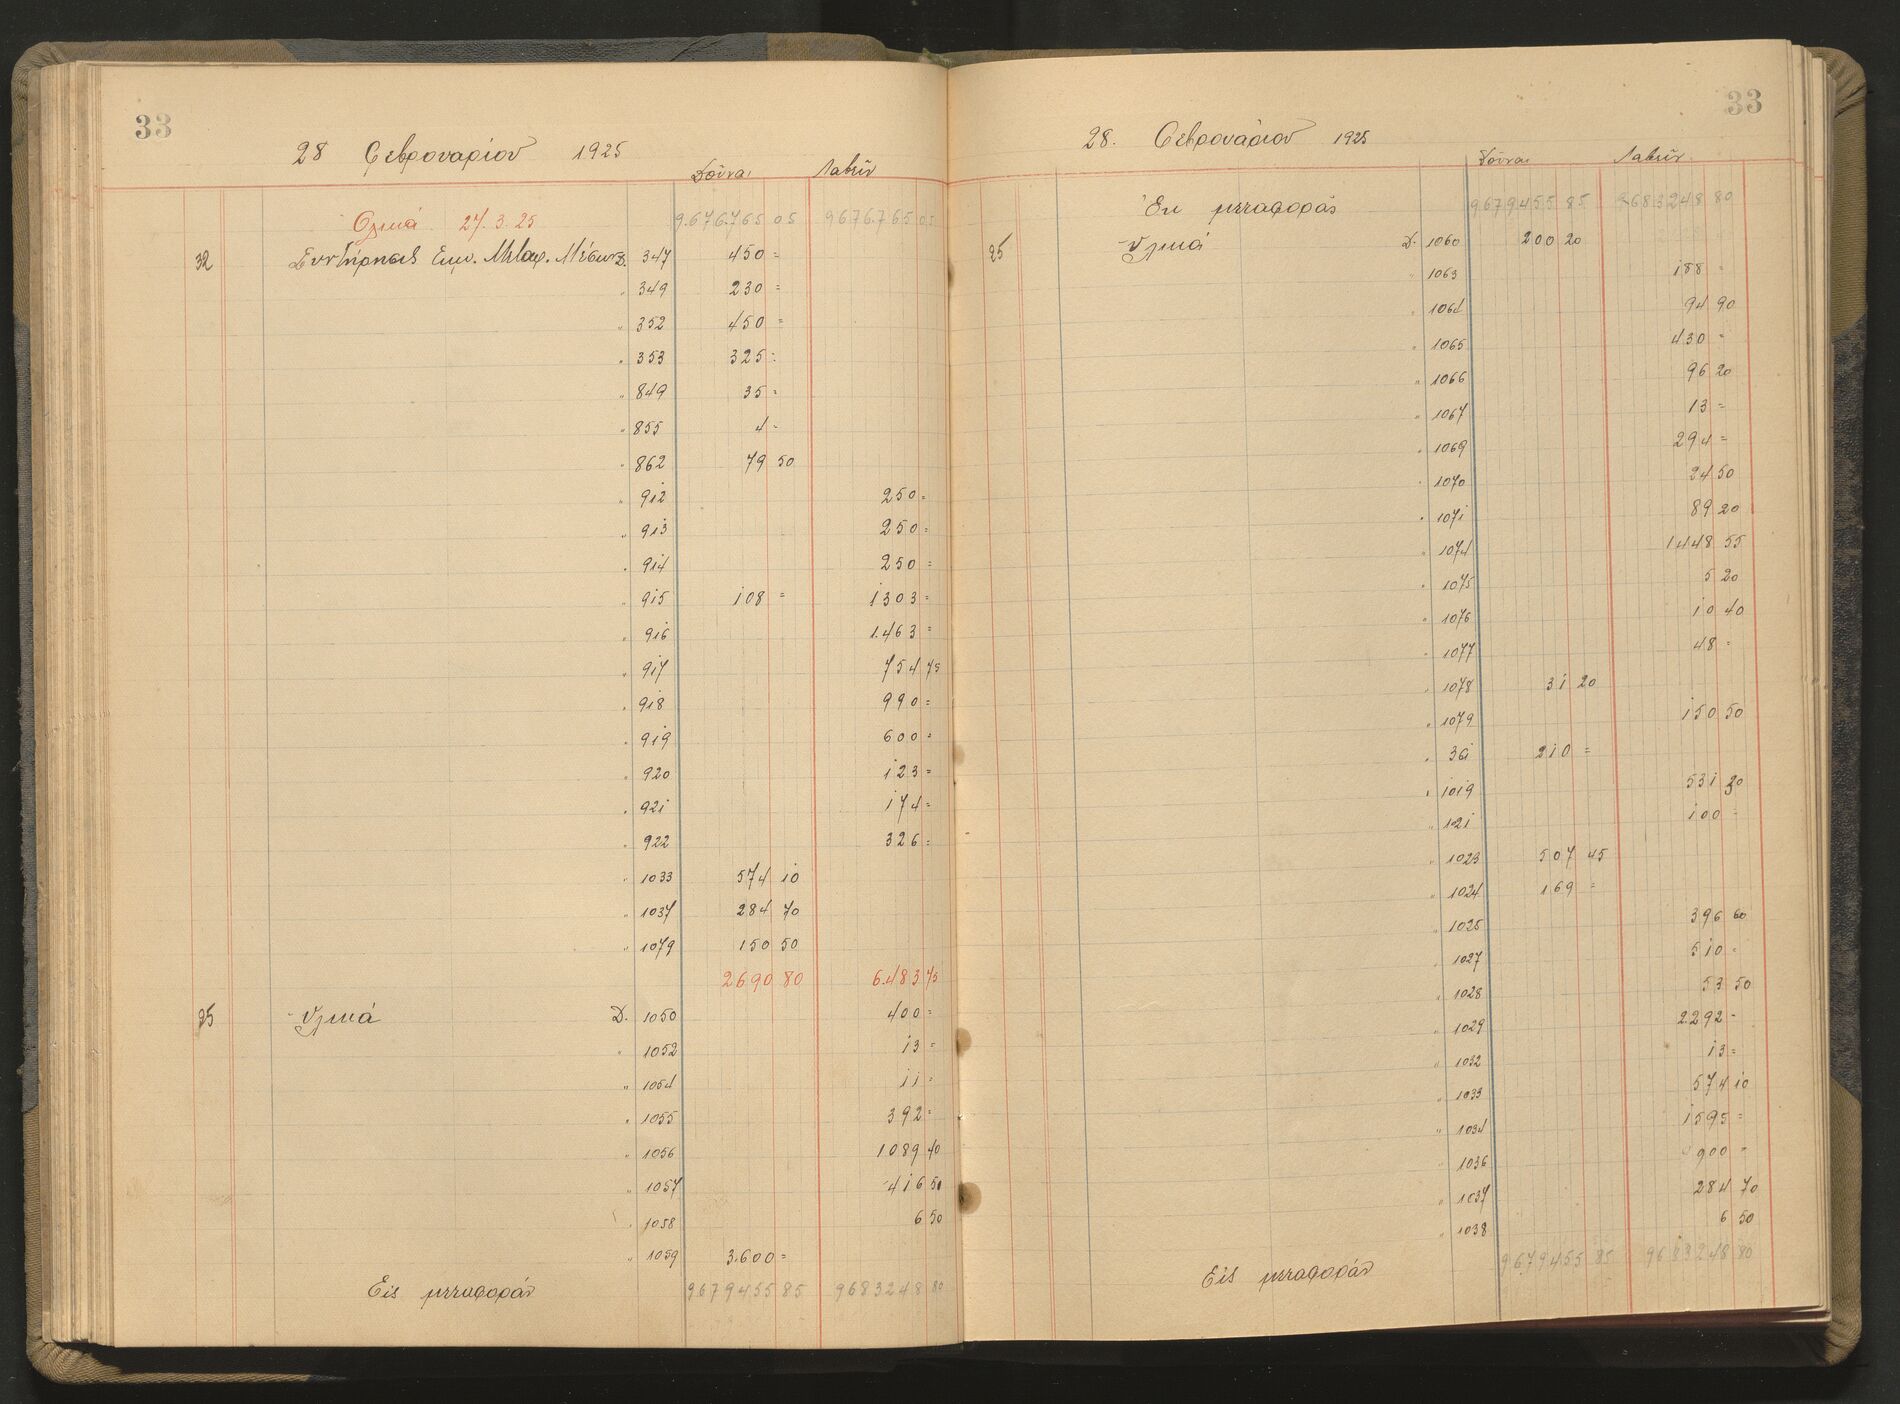 33
28 Φεβρουαρίου 1925
Δοῦναι Λαβεῖν
Ὁλικά 27.3.25 9.676.765 05 9676.765 05
32 Συντήρησις Δ. 347 450 =
" 349 230 =
" 352 450 =
" 353 325 =
" 849 35 =
" 855 4 =
" 862 79 50
" 912 250 =
" 913 250 =
" 914 250 =
" 915 108 = 1303 =
" 916 1.463 =
" 917 754 75
" 918 990 =
" 919 600 =
" 920 123 =
" 921 174 =
" 922 326 =
" 1033 574 10
" 1037 284 70
" 1079 150 50
2690 80 6.483 75
25 Ὑλικά Δ. 1050 400 =
" 1052 13 =
" 1054 11 =
" 1055 392 =
" 1056 1089 40
" 1057 416 50
" 1058 6 50
" 1059 3.600 =
Εἰς μεταφοράν 9679455 85 9683248 80
33
28. Φεβρουάριου 1925
Δοῦναι Λαβεῖν
Ἐκ μεταφορᾶς 9679455 85 9683248 80
25 Ὑλικά Δ. 1060 200 20
" 1063 188 =
" 1064 94 90
" 1065 430 =
" 1066 96 20
" 1067 13 =
" 1069 294 =
" 1070 24 50
" 1071 89 20
" 1074 1448 55
" 1075 5 20
" 1076 10 40
" 1077 48 =
" 1078 31 20
" 1079 150 50
" 361 210 =
" 1019 531 20
" 121 100 =
" 1023 507 45
" 1024 169 =
" 1025 396 60
" 1027 510 =
" 1028 53 50
" 1029 2.292 =
" 1032 13 =
" 1033 574 10
" 1034 1595 =
" 1036 900 =
" 1037 284 70
" 1038 6 50
Εἰς μεταφοράν 9679455 85 9683248 80